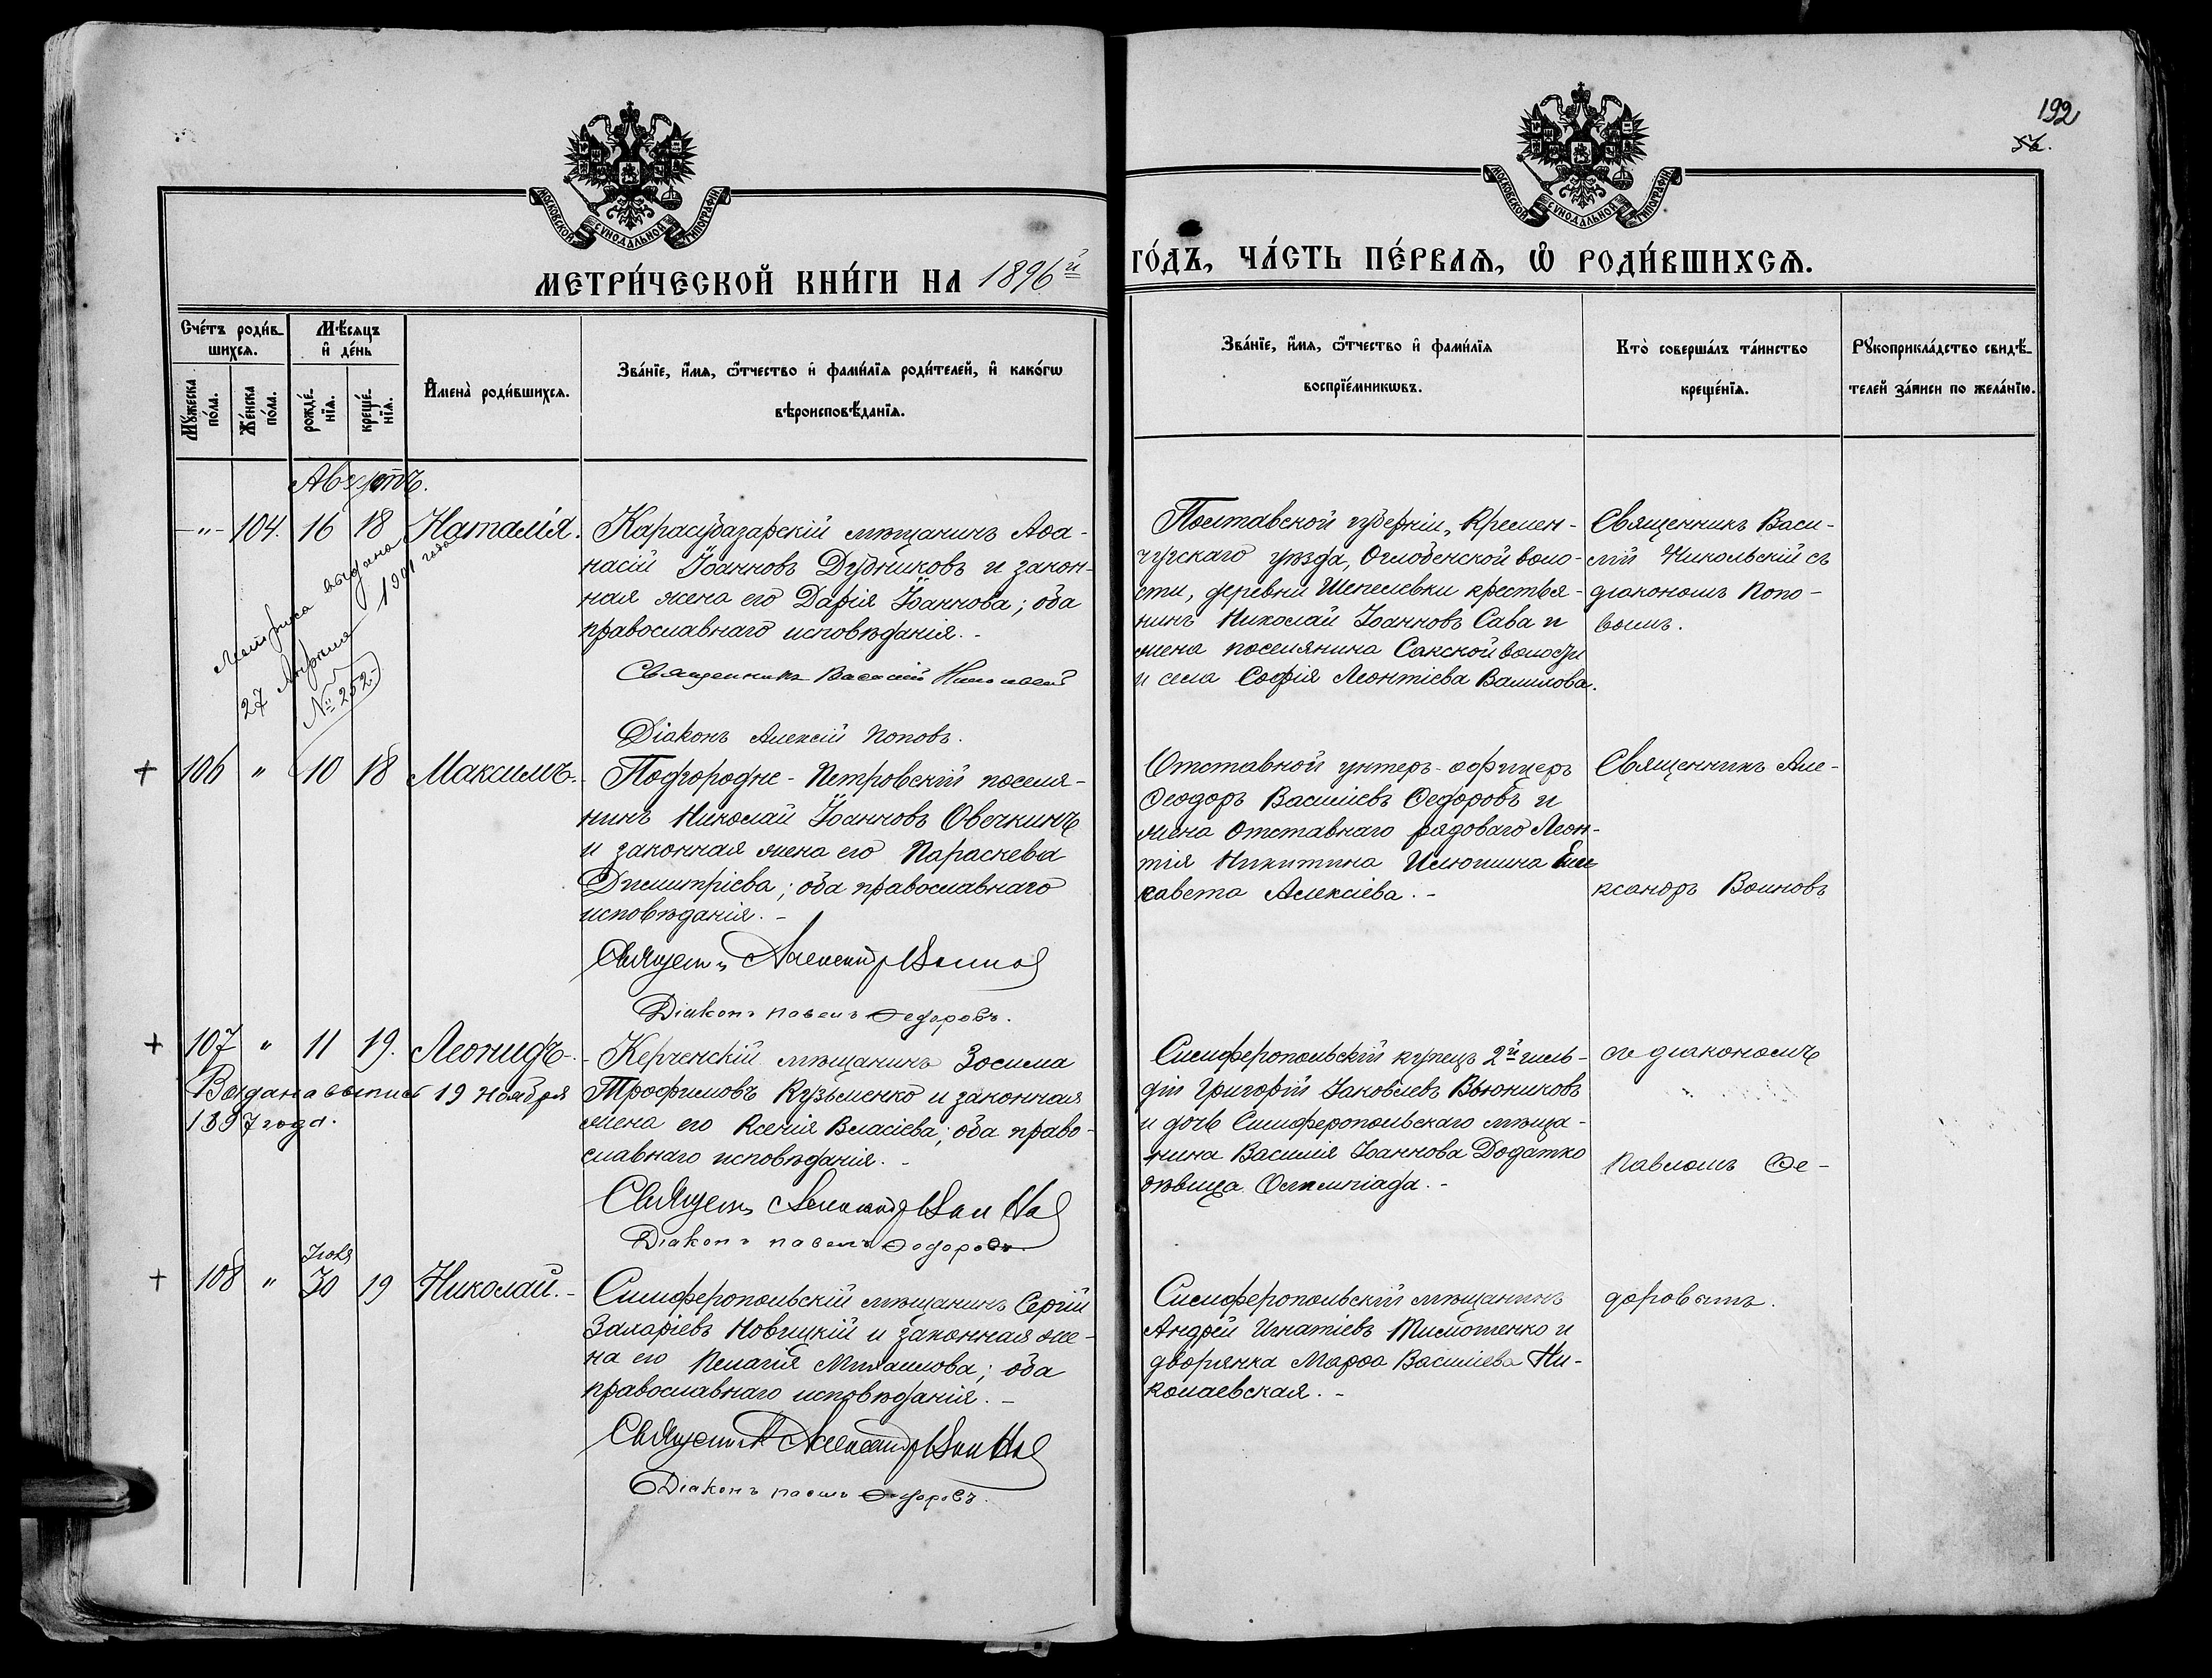 192
56.
МОСКОВСКОЙ СѴНОДАЛЬНОЙ ТИПОГРАФІИ
МОСКОВСКОЙ СѴНОДАЛЬНОЙ ТИПОГРАФІИ
МЕТРИ́ЧЕСКОЙ КНИ́ГИ НА 1896й
ГО́ДЪ, ЧА́СТЬ ПЕ́РВАЯ, Ѽ РОДИ́ВШИХСЯ.
Сче́тъ роди́в-
шихся.
Мѣ́сяцъ
и҆ де́нь
Мꙋ́жеска
по́ла.
Же́нска
по́ла.
рожде́-
нїя.
креще́-
нїя.
И҆мена̀ роди́вшихся.
Зва́нїе, и҆́мя, ѻ҆́тчество и҆ фами́лїя роди́телей, и҆ како́гѡ
вѣроисповѣ́данїя.
Зва́нїе, и҆́мя, ѻ҆́тчество и҆ фами́лїя
воспрїе́мникѡвъ.
Кто̀ соверша́лъ та́инство
креще́нїя.
Рꙋкоприкла́дство свидѣ́-
телей за́писи по жела́нїю.
Августъ.
-"- 104. 16 18 Наталія.
Карасубазарскій мѣщанинъ Аѳа-
насій Іоанновъ Дудниковъ и закон-
ная жена его Дарія Іоаннова; оба
православнаго исповѣданія. -
Священникъ Василій Никольскій
Діаконъ Алексій Поповъ.
Метриса выдана
27 Апрѣля 1901 года
№ 252.-
Полтавской губерніи, Кремен-
чугскаго уѣзда, Оглобенской воло-
сти, деревни Шепелевки крестья-
нинъ Николай Іоанновъ Сава и
жена поселянина Сакской волости
и села Софія Леонтіева Валихова.
Священникъ Васи-
лій Никольскій съ
діакономъ Попо-
вымъ.
+ 106 " 10 18 Максимъ.
Подгородне-Петровскій поселя-
нинъ Николай Іоанновъ Овечкинъ
и законная жена его Параскева
Димитріева; оба православнаго
исповѣданія. -
Священ Александр Воинов
Діаконъ Павелъ Ѳедоровъ.
Отставной унтеръ-офицеръ
Ѳеодоръ Василіевъ Ѳедоровъ и
жена отставнаго рядоваго Леон-
тія Никитина Илюшина Ели
савета Алексіева. -
Священникъ Але-
ксандръ Воиновъ
+ 107 " 11 19. Леонидъ.
Выдана выпись 19 ноября
1897 года.
Керченскій мѣщанинъ Зосима
Трофимовъ Кузьменко и законная
жена его Ксенія Власіева; оба право-
славнаго исповѣданія. -
Священ Александр Воинов
Діаконъ Павелъ Ѳедоровъ
Симферопольскій купецъ 2й гиль-
діи Григорій Іаковлевъ Вьюниковъ
и дочь Симферопольскаго мѣща-
нина Василія Іоаннова Додатко
дѣвица Олимпіада. -
съ діакономъ
Павломъ Ѳе-
Іюля
+ 108 " 30 19 Николай. -
Симферопольскій мѣщанинъ Сергій
Захаріевъ Новицкій и законная же-
на его Пелагія Михаилова; оба
православнаго исповѣданія. -
Священ Александр Воинов
Діаконъ Павелъ Ѳедоровъ.
Симферопольскій мѣщанинъ
Андрей Игнатіевъ Тимошенко и
дворянка Марѳа Василіева Ни-
колаевская. -
доровымъ.